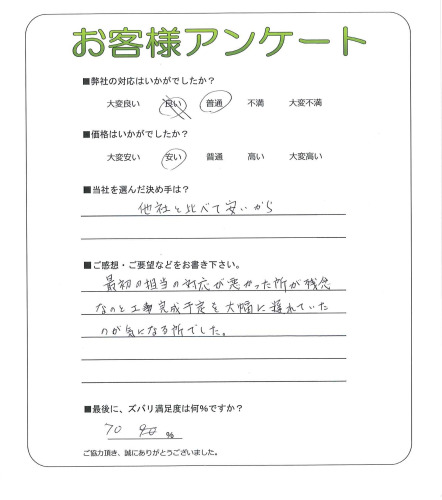 お客様アンケート
■弊社の対応はいかがでしたか?
大変良い 良い 普通 不満 大変不満
■価格はいかがでしたか?
大変安い 安い 普通 高い 大変高い
■当社を選んだ決め手は?
他社と比べて安いから
■ご感想・ご要望などをお書き下さい。
最初の担当の対応が悪かった所が残念
なのと工事完成予定を大幅に遅れていた
のが気になる所でした。
■最後に、ズバリ満足度は何%ですか?
70 %
ご協力頂き、誠にありがとうございました。